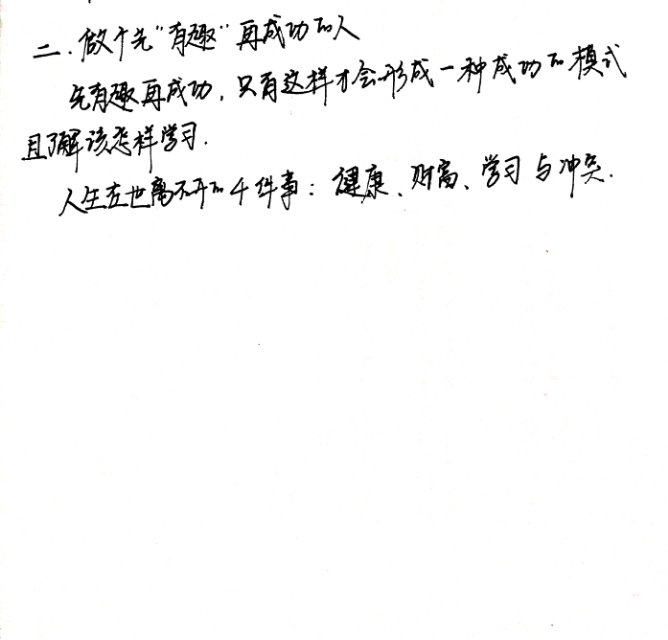 二.做个先"有趣"再成功的人
先有趣再成功,只有这样才会形成一种成功的模式
且了解该怎样学习.
人生在世离不开的4件事:健康、财富、学习与冲突.